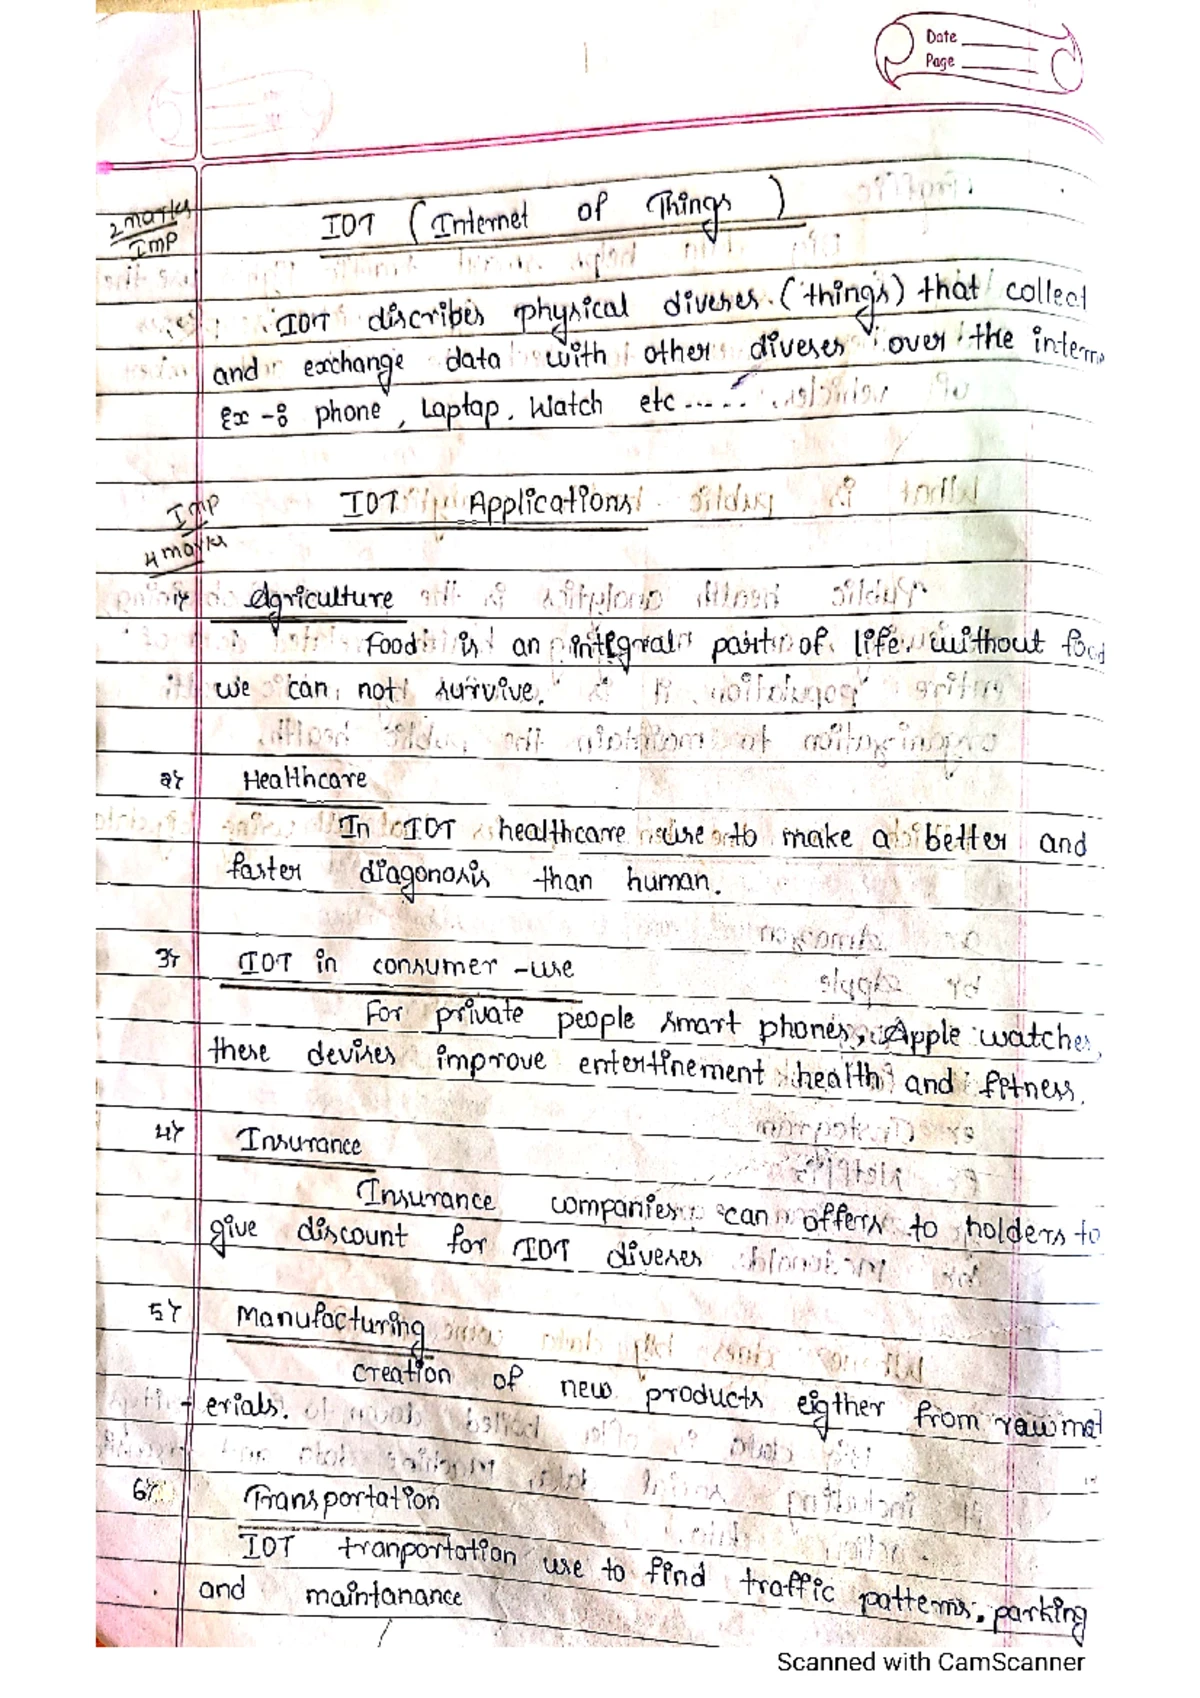 Date
Page
2 marks
Imp
IOT (Internet of Things)
IOT discribes physical diveses (things) that collect
and exchange data with other diveses over the intern
Ex -: phone, Laptap, Watch etc.....
Imp
4 marks
IOT Applications
1) Agriculture
Food is an integral part of life without food
we can not survive.
2) Healthcare
In IOT healthcare use to make a better and
faster diagonosis than human.
3) IOT in consumer -use
For private people smart phones, Apple watches,
these devises improve entertinement health and fitness.
4) Insurance
Insurance companies can offers to holders to
give discount for IOT diveses
5) Manufacturing
creation of new products eigther from raw mat
- erials.
6) Transportation
IOT tranportation use to find traffic patterns, parking
and maintanance
Scanned with CamScanner